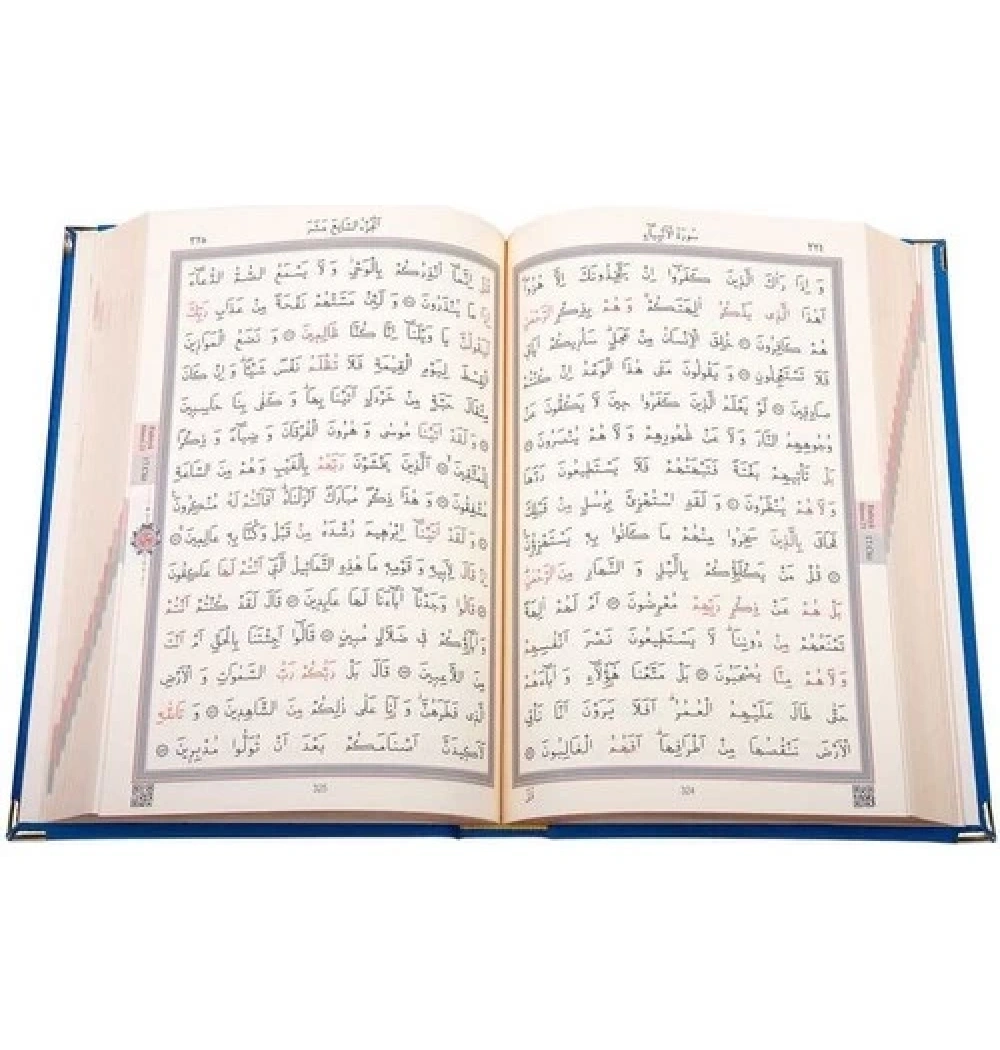 ٣٢٤
سورة الأنبياء
وَ اِذَا رَاٰكَ الَّذِينَ كَفَرُوا اِنْ يَتَّخِذُونَكَ اِلَّا هُزُوًا
اَهٰذَا الَّذِى يَذْكُرُ اٰلِهَتَكُمْ وَ هُمْ بِذِكْرِ الرَّحْمٰنِ
هُمْ كَافِرُونَ ۞ خُلِقَ الْاِنْسَانُ مِنْ عَجَلٍ سَاُرِيكُمْ اٰيَاتِى
فَلَا تَسْتَعْجِلُونِ ۞ وَ يَقُولُونَ مَتٰى هٰذَا الْوَعْدُ اِنْ كُنْتُمْ
صَادِقِينَ ۞ لَوْ يَعْلَمُ الَّذِينَ كَفَرُوا حِينَ لَا يَكُفُّونَ عَنْ
وُجُوهِهِمُ النَّارَ وَلَا عَنْ ظُهُورِهِمْ وَلَا هُمْ يُنْصَرُونَ ۞
بَلْ تَأْتِيهِمْ بَغْتَةً فَتَبْهَتُهُمْ فَلَا يَسْتَطِيعُونَ رَدَّهَا
وَلَا هُمْ يُنْظَرُونَ ۞ وَ لَقَدِ اسْتُهْزِئَ بِرُسُلٍ مِنْ قَبْلِكَ
فَحَاقَ بِالَّذِينَ سَخِرُوا مِنْهُمْ مَا كَانُوا بِهِ يَسْتَهْزِؤُنَ
۞ قُلْ مَنْ يَكْلَؤُكُمْ بِالَّيْلِ وَ النَّهَارِ مِنَ الرَّحْمٰنِ
بَلْ هُمْ عَنْ ذِكْرِ رَبِّهِمْ مُعْرِضُونَ ۞ اَمْ لَهُمْ اٰلِهَةٌ
تَمْنَعُهُمْ مِنْ دُونِنَا لَا يَسْتَطِيعُونَ نَصْرَ اَنْفُسِهِمْ
وَلَا هُمْ مِنَّا يُصْحَبُونَ ۞ بَلْ مَتَّعْنَا هٰؤُلَاءِ وَ اٰبَاءَهُمْ
حَتّٰى طَالَ عَلَيْهِمُ الْعُمُرُ اَفَلَا يَرَوْنَ اَنَّا نَأْتِى
الْاَرْضَ نَنْقُصُهَا مِنْ اَطْرَافِهَا اَفَهُمُ الْغَالِبُونَ ۞
324
قُلْ
اَلْجُزْءُ السَّابِعَ عَشَرَ
٣٢٥
قُلْ اِنَّمَا اُنْذِرُكُمْ بِالْوَحْىِ وَ لَا يَسْمَعُ الصُّمُّ الدُّعَاءَ
اِذَا مَا يُنْذَرُونَ ۞ وَ لَئِنْ مَسَّتْهُمْ نَفْحَةٌ مِنْ عَذَابِ رَبِّكَ
لَيَقُولُنَّ يَا وَيْلَنَا اِنَّا كُنَّا ظَالِمِينَ ۞ وَ نَضَعُ الْمَوَازِينَ
الْقِسْطَ لِيَوْمِ الْقِيٰمَةِ فَلَا تُظْلَمُ نَفْسٌ شَيْئًا وَ اِنْ كَانَ
مِثْقَالَ حَبَّةٍ مِنْ خَرْدَلٍ اَتَيْنَا بِهَا وَ كَفٰى بِنَا حَاسِبِينَ
۞ وَ لَقَدْ اٰتَيْنَا مُوسٰى وَ هٰرُونَ الْفُرْقَانَ وَ ضِيَاءً وَ ذِكْرًا
لِلْمُتَّقِينَ ۞ اَلَّذِينَ يَخْشَوْنَ رَبَّهُمْ بِالْغَيْبِ وَ هُمْ مِنَ السَّاعَةِ
مُشْفِقُونَ ۞ وَ هٰذَا ذِكْرٌ مُبَارَكٌ اَنْزَلْنَاهُ اَفَاَنْتُمْ لَهُ مُنْكِرُونَ
۞ وَ لَقَدْ اٰتَيْنَا اِبْرٰهِيمَ رُشْدَهُ مِنْ قَبْلُ وَ كُنَّا بِهِ عَالِمِينَ ۞
اِذْ قَالَ لِاَبِيهِ وَ قَوْمِهِ مَا هٰذِهِ التَّمَاثِيلُ الَّتِى اَنْتُمْ لَهَا عَاكِفُونَ
۞ قَالُوا وَجَدْنَا اٰبَاءَنَا لَهَا عَابِدِينَ ۞ قَالَ لَقَدْ كُنْتُمْ اَنْتُمْ
وَ اٰبَاؤُكُمْ فِى ضَلَالٍ مُبِينٍ ۞ قَالُوا اَجِئْتَنَا بِالْحَقِّ اَمْ اَنْتَ
مِنَ اللَّاعِبِينَ ۞ قَالَ بَلْ رَبُّكُمْ رَبُّ السَّمٰوَاتِ وَ الْاَرْضِ
الَّذِى فَطَرَهُنَّ وَ اَنَا عَلٰى ذٰلِكُمْ مِنَ الشَّاهِدِينَ ۞ وَ تَاللّٰهِ
لَاَكِيدَنَّ اَصْنَامَكُمْ بَعْدَ اَنْ تُوَلُّوا مُدْبِرِينَ ۞
325